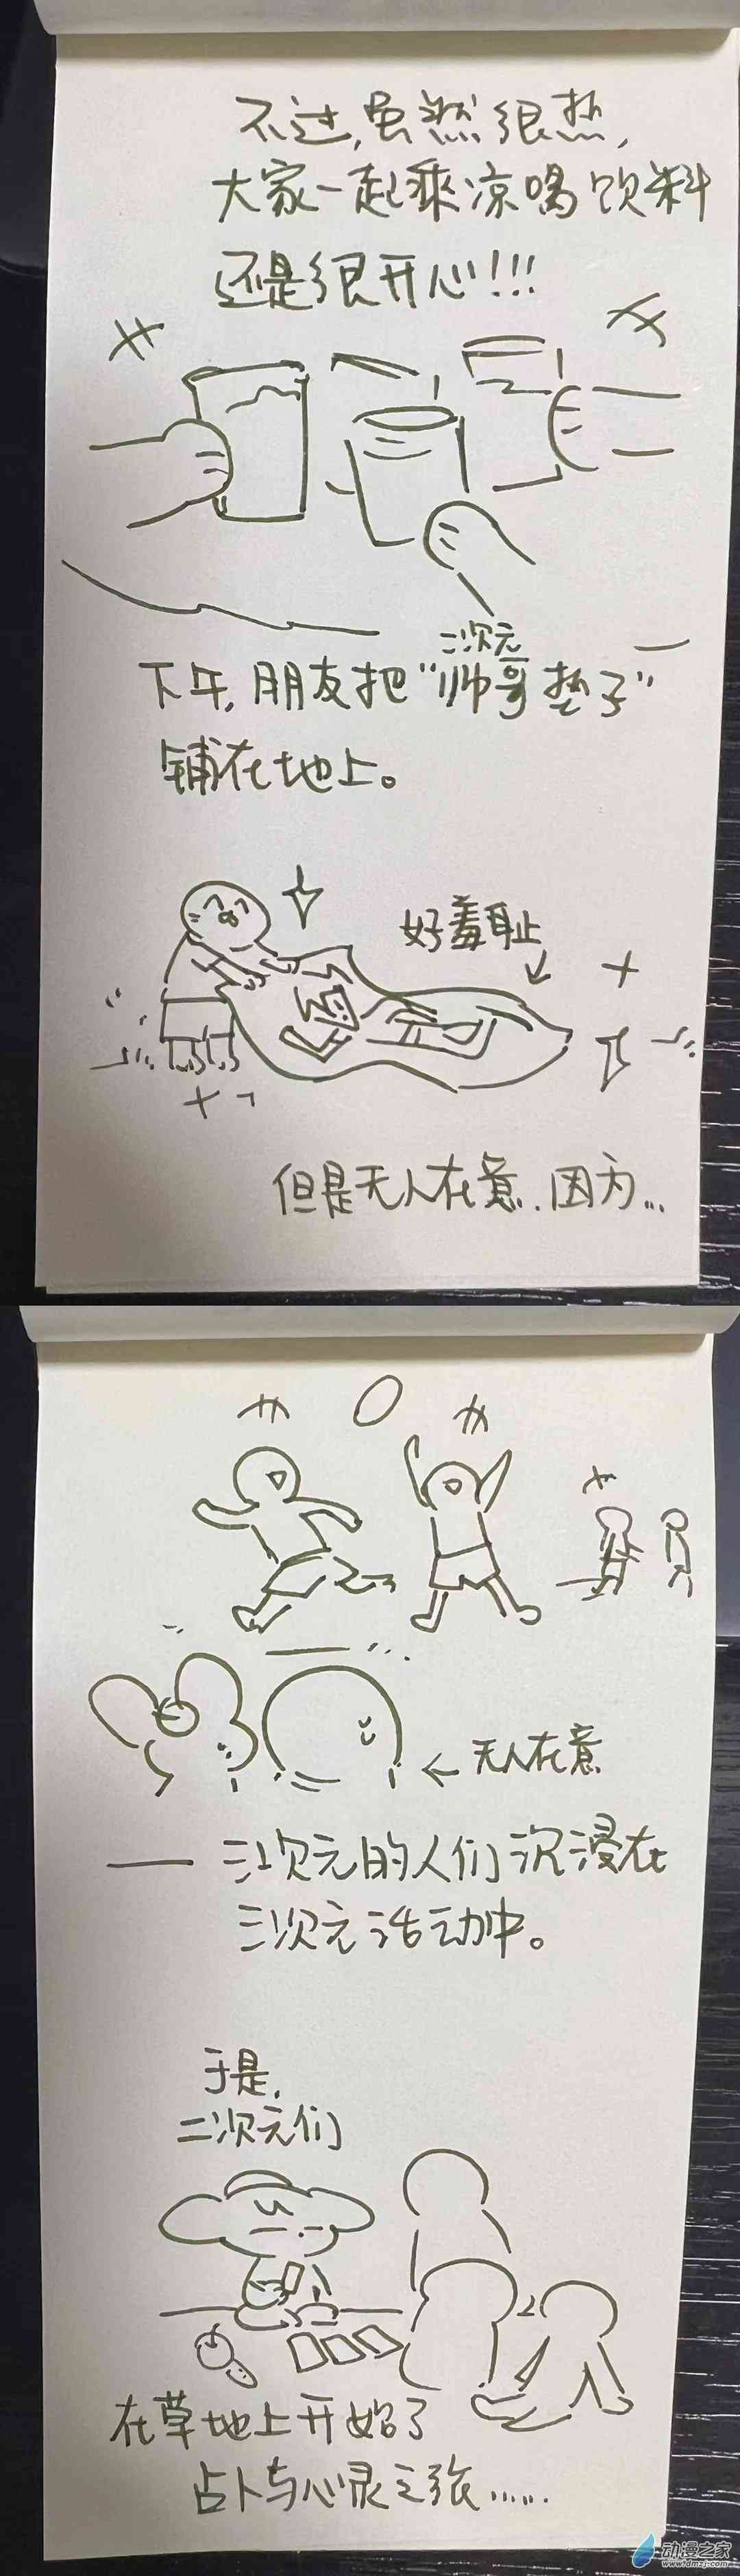 不过,虽然很热,
大家一起乘凉喝饮料
还是很开心!!!
二次元
下午,朋友把“帅哥垫子”
铺在地上。
好羞耻
但是无人在意.因为...
无人在意
三次元的人们沉浸在
三次元活动中。
于是,
二次元们
在草地上开始了
占卜与心灵之旅......
动漫之家
www.dmzj.com